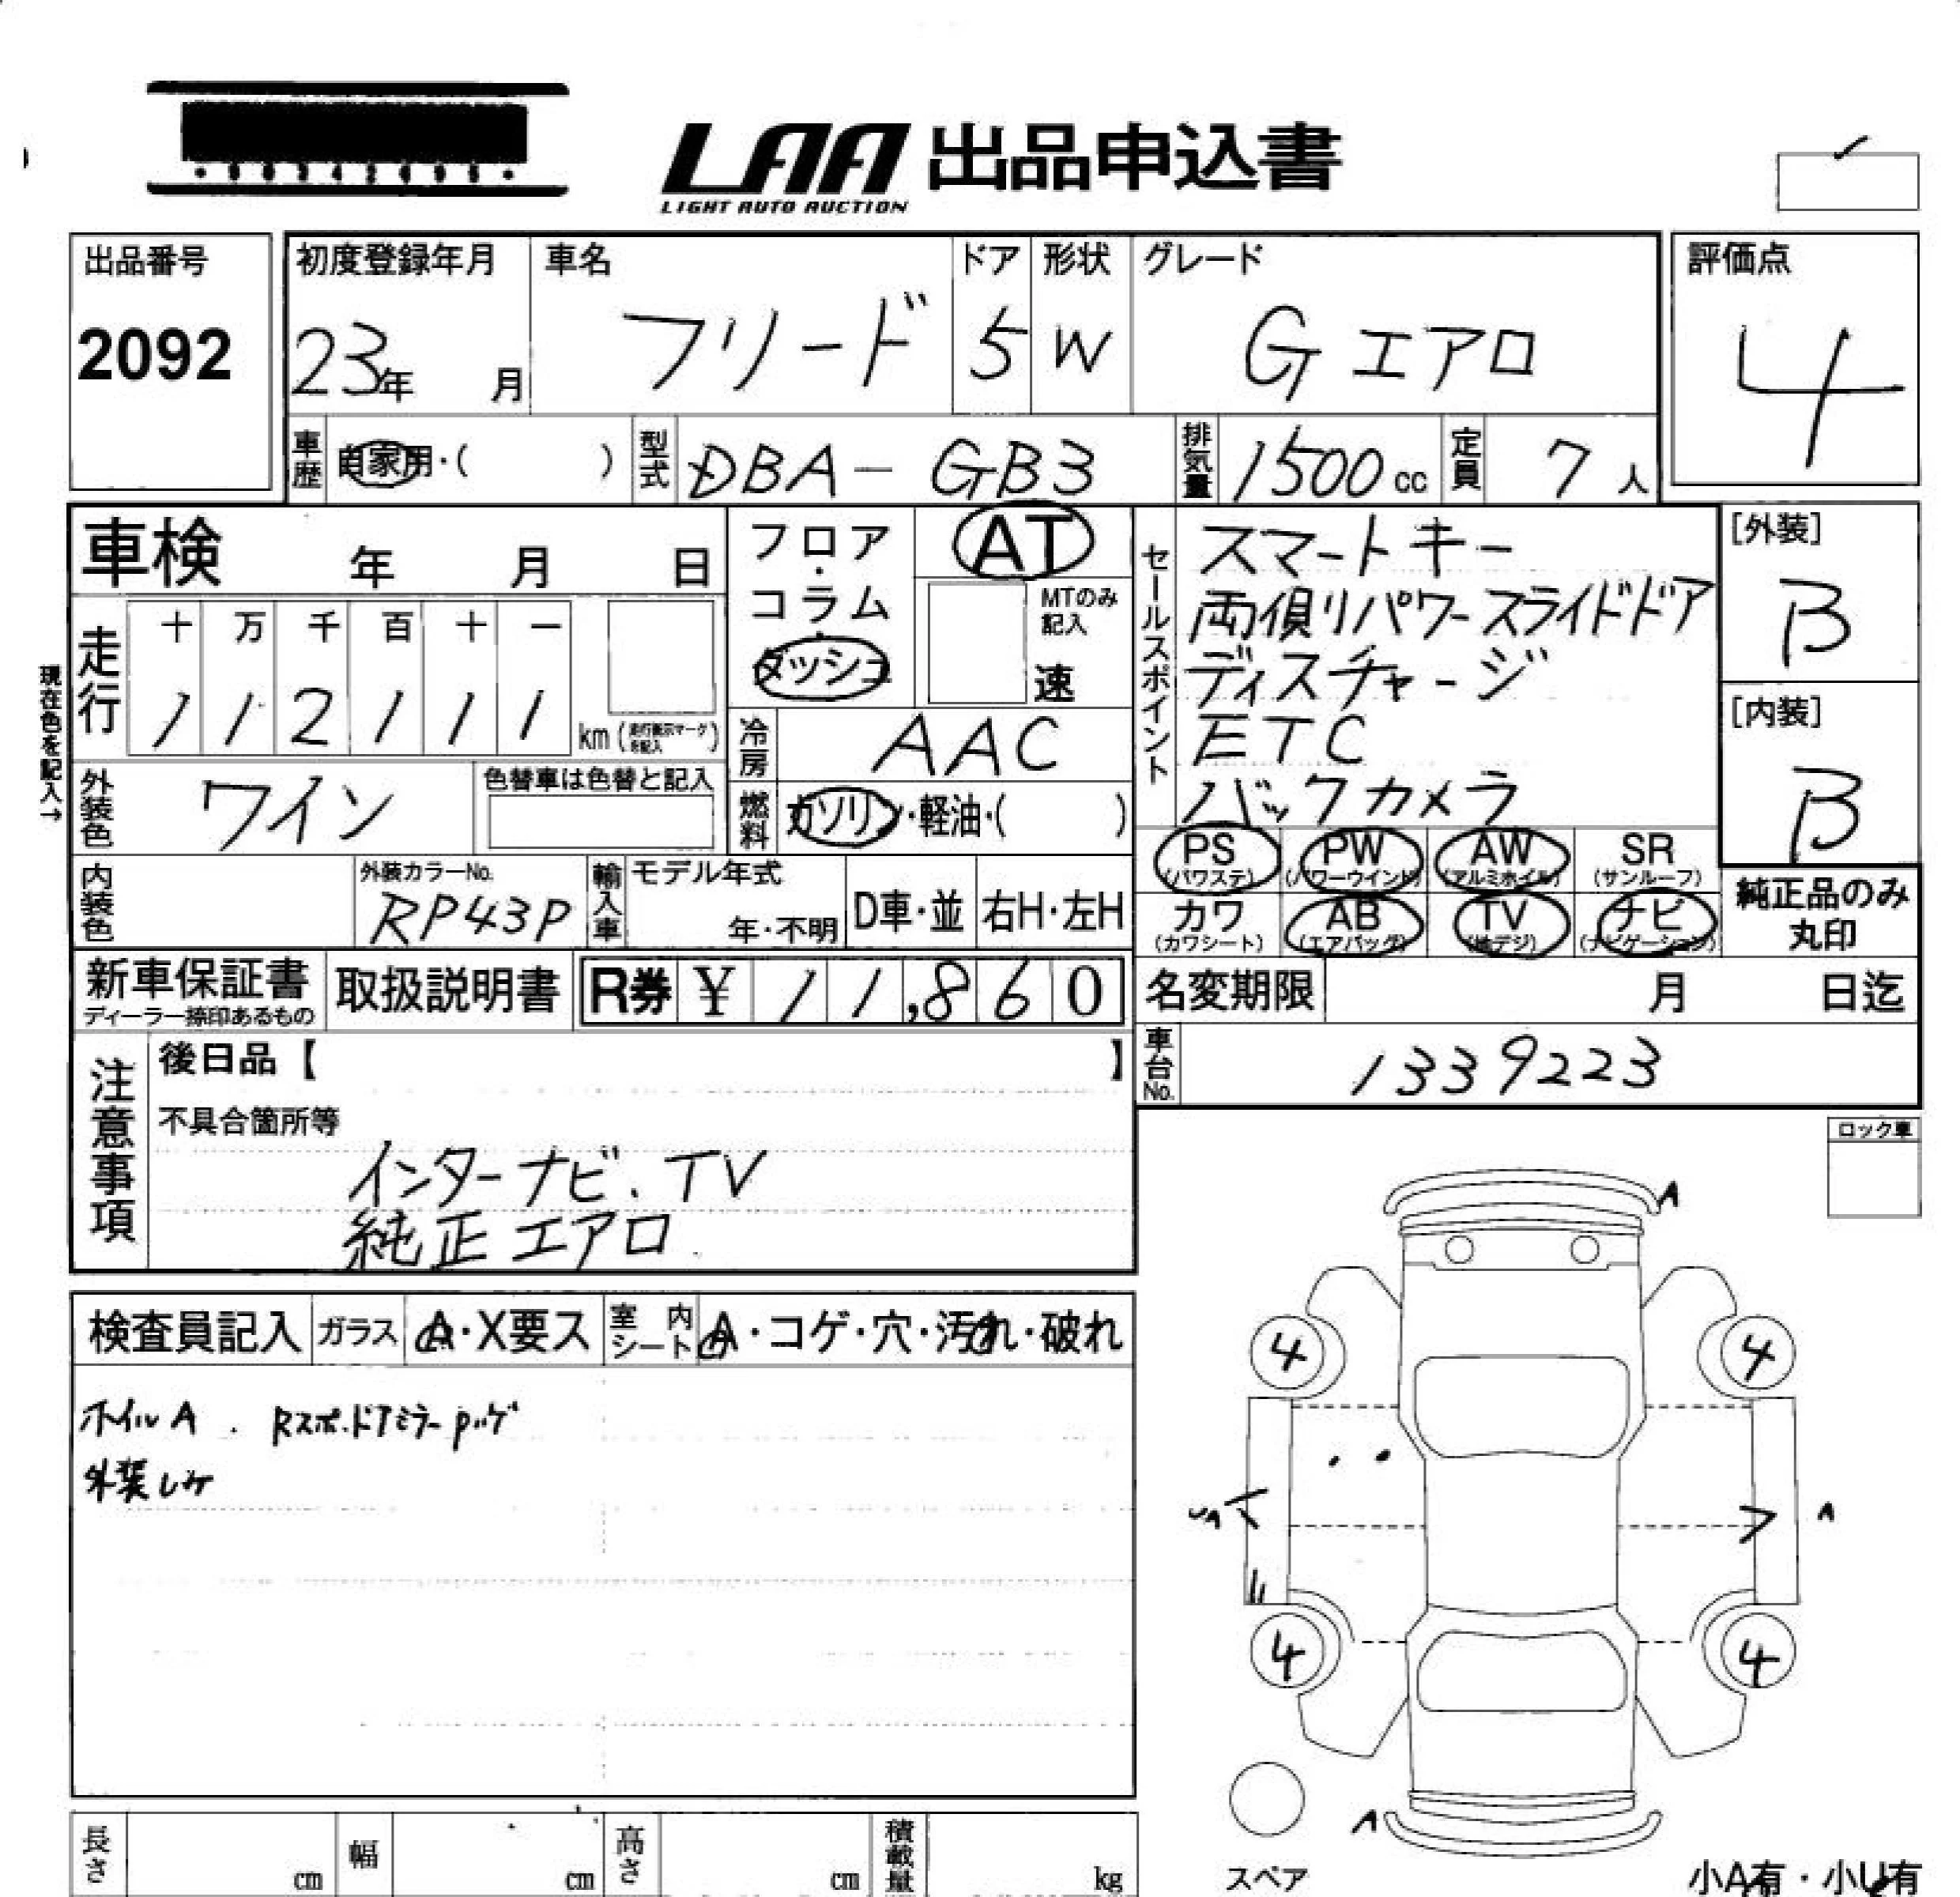 LAA 出品申込書
LIGHT AUTO AUCTION
出品番号
2092
初度登録年月
23年 月
車名
フリード
ドア
5
形状
W
グレード
Gエアロ
評価点
4
車歴 自家用・( )
型式 DBA-GB3
排気量 1500cc
定員 7人
車検 年 月 日
フロア・コラム・ダッシュ
AT
MTのみ記入
速
現在色を記入→
走行
十 万 千 百 十 一
1 1 2 1 1 1
km(走行表示マークを記入)
冷房 AAC
外装色 ワイン
色替車は色替と記入
燃料 ガソリン・軽油・( )
セールスポイント
スマートキー
両側パワースライドドア
ディスチャージ
ETC
バックカメラ
[外装]
B
[内装]
B
内装色
外装カラーNo.
RP43P
輸入車
モデル年式
年・不明
D車・並
右H・左H
PS (パワステ) PW (パワーウインド) AW (アルミホイル) SR (サンルーフ)
カワ (カワシート) AB (エアバッグ) TV (地デジ) ナビ (ナビゲーション)
純正品のみ
丸印
新車保証書
ディーラー捺印あるもの
取扱説明書
R券 ¥ 11,860
名変期限 月 日迄
車台No. 1339223
注意事項
後日品【 】
不具合箇所等
インターナビ.TV
純正エアロ
ロック車
検査員記入 ガラス A・X要ス 室内シート A・コゲ・穴・汚れ・破れ
ホイルA . Rスポ.ドアミラー
外装
A
4 4
A
4 4
A
スペア
小A有・小U有
長さ cm 幅 cm 高さ cm 積載量 kg